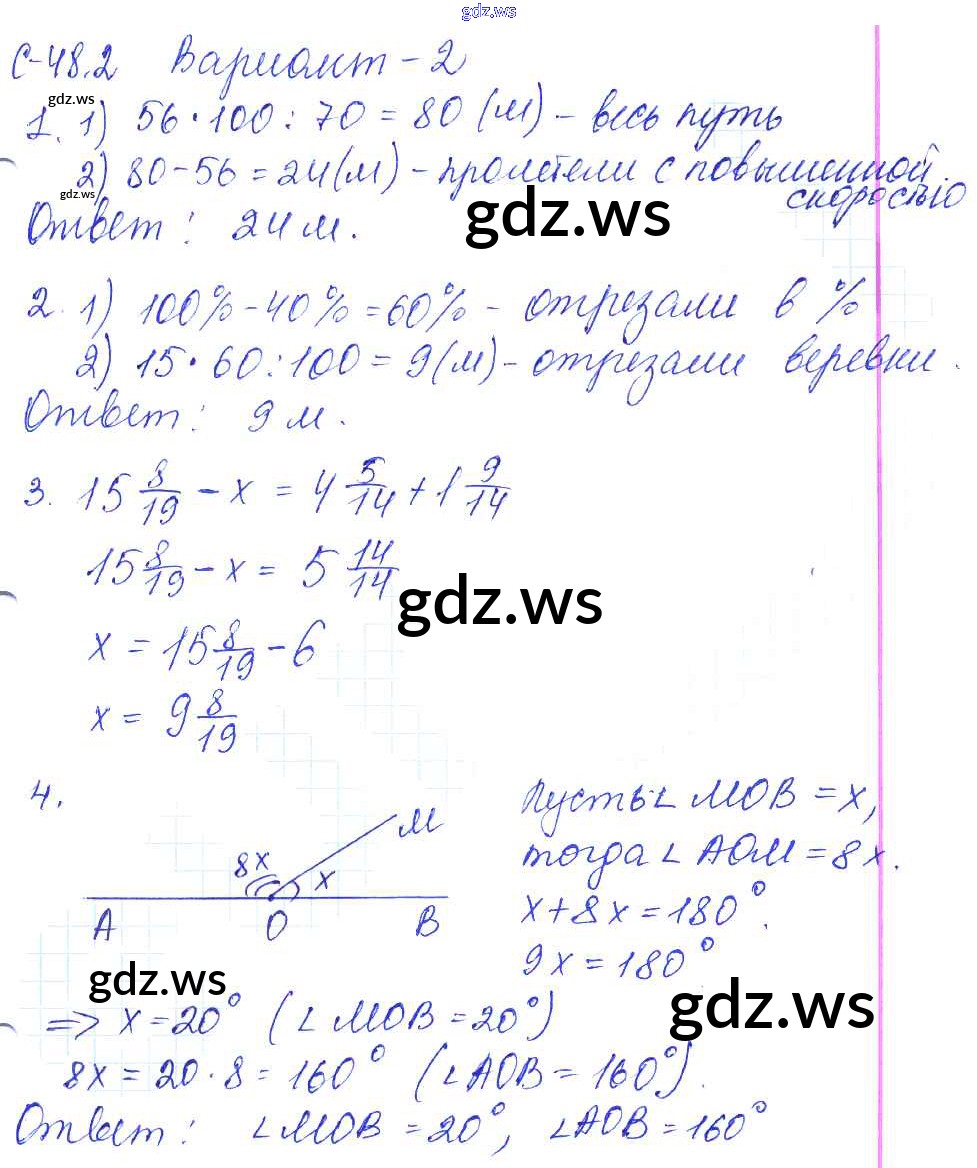 gdz.ws
С-48.2 Вариант-2
gdz.ws
1. 1) 56·100:70=80 (м) - весь путь
2) 80-56=24(м) - пролетели с повышенной
скоростью
gdz.ws
gdz.ws
Ответ: 24 м.
2. 1) 100%-40%=60% - отрезали в %
2) 15·60:100=9(м) - отрезали веревки.
Ответ: 9 м.
3. 15 8/19 - x = 4 5/14 + 1 9/14
15 8/19 - x = 5 14/14
gdz.ws
x = 15 8/19 - 6
x = 9 8/19
4. Пусть ∠MOB = x,
M
тогда ∠AOM = 8x.
8x x
A O B
x+8x=180°.
9x=180°
gdz.ws
gdz.ws
=> x=20° (∠MOB=20°)
8x=20·8=160° (∠AOB=160°).
Ответ: ∠MOB=20°, ∠AOB=160°